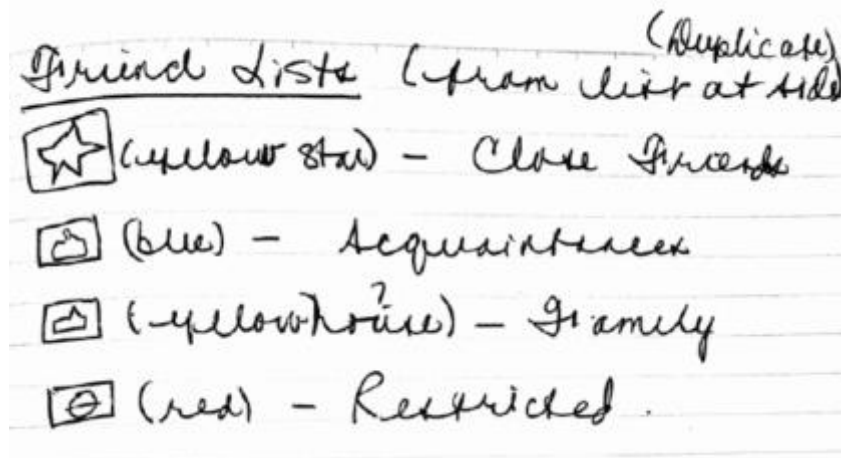 (Duplicate)
Friend Lists (from list at side
(yellow star) - Close Friends
(blue) - Acquaintances
(yellow house?) - Family
(red) - Restricted.